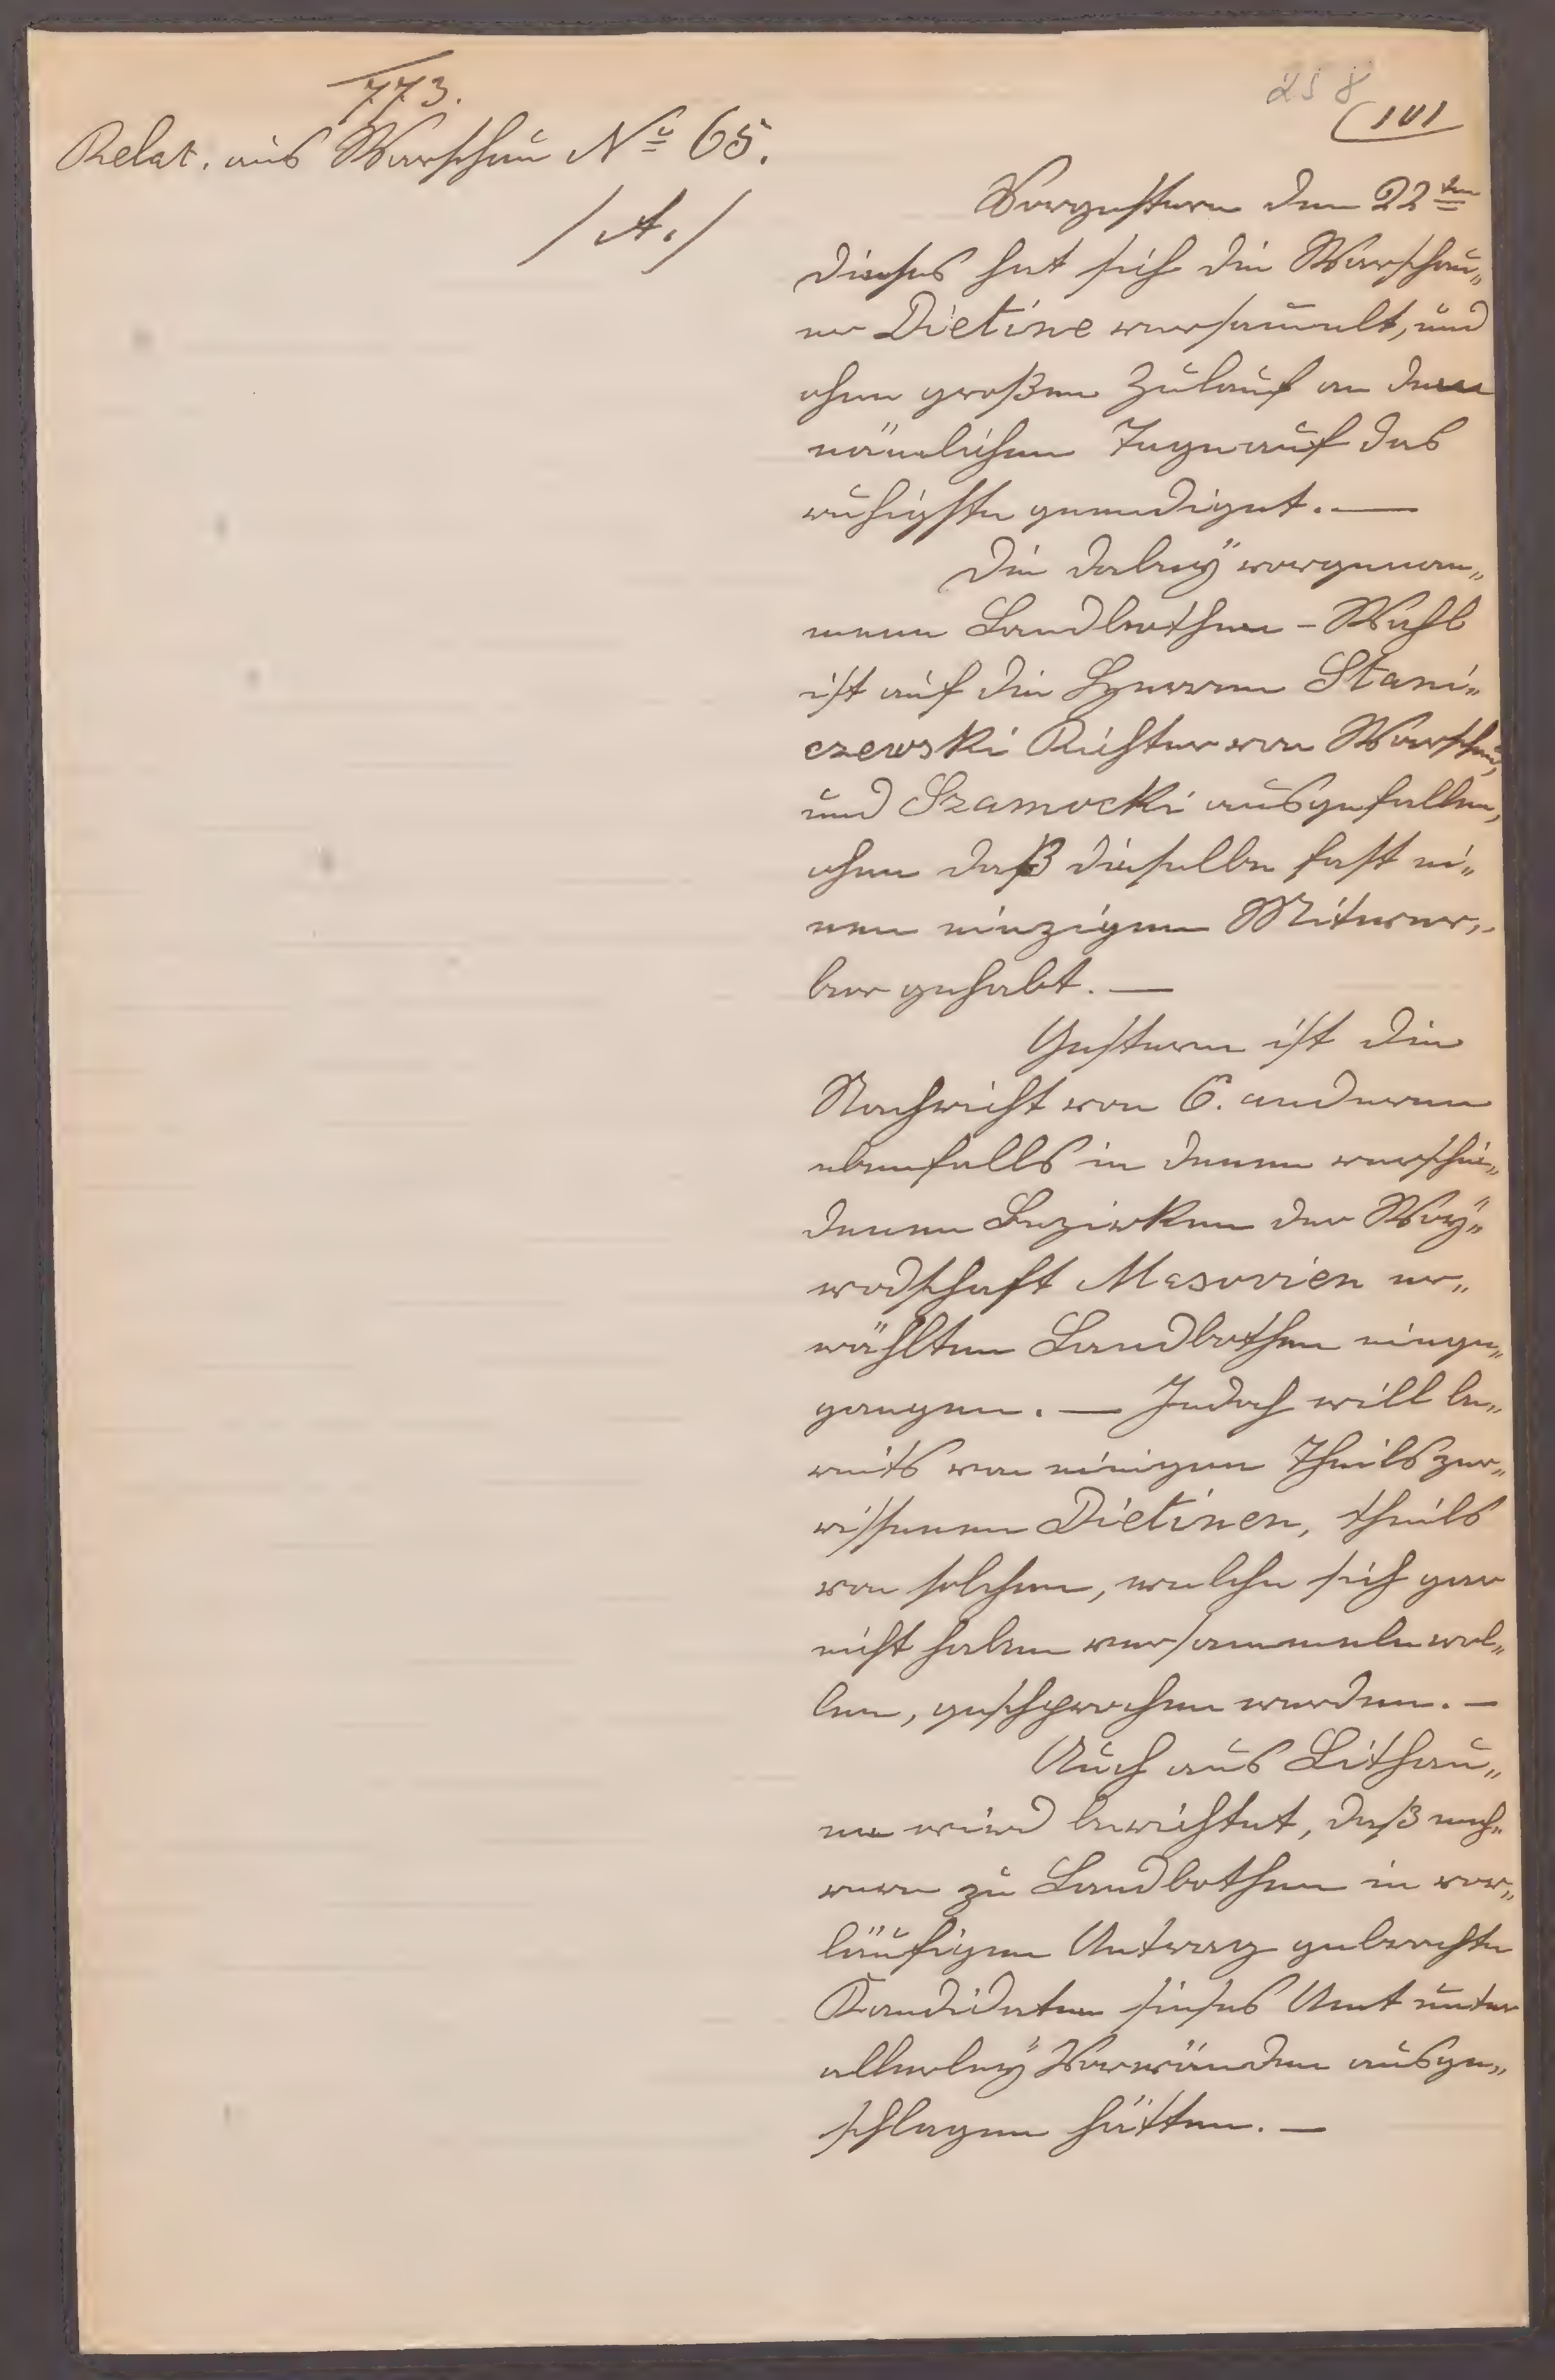 773.
Relat. aus Warschau No 65.
/ A. /
258
101
Vorgestern den 22ten
dieses hat sich die Warschau„
er Dietine versammelt, und
ohne großen Zulauf an dem
nämlichen Tage auf das
ruhigste geendiget. —
Die dabey vorgenom„
mene Landbothen-Wahl
ist auf die Herren Stani„
czewski Richter von Warschau,
und Szamocki ausgefallen,
ohne daß dieselbe fast ei„
nen einzigen Mitwer„
ber gehabt. —
Gestern ist die
Nachricht von 6. anderen
ebenfalls in denen verschie„
denen Bezirken der Woy„
wodschaft Masovien er„
wählten Landbothen einge„
gangen. — Jedoch will be„
reits von einigen theils zer„
rissenen Dietinen, theils
von solchen, welche sich gar
nicht haben versammeln wol„
len, geschprochen werden. —
Auch aus Lithau„
en wird berichtet, daß meh„
rere zu Landbothen in vor„
läufigen Antrag gebrachte
Kandidaten dieses Amt unter
allerley Vorwänden ausge„
schlagen hätten. —